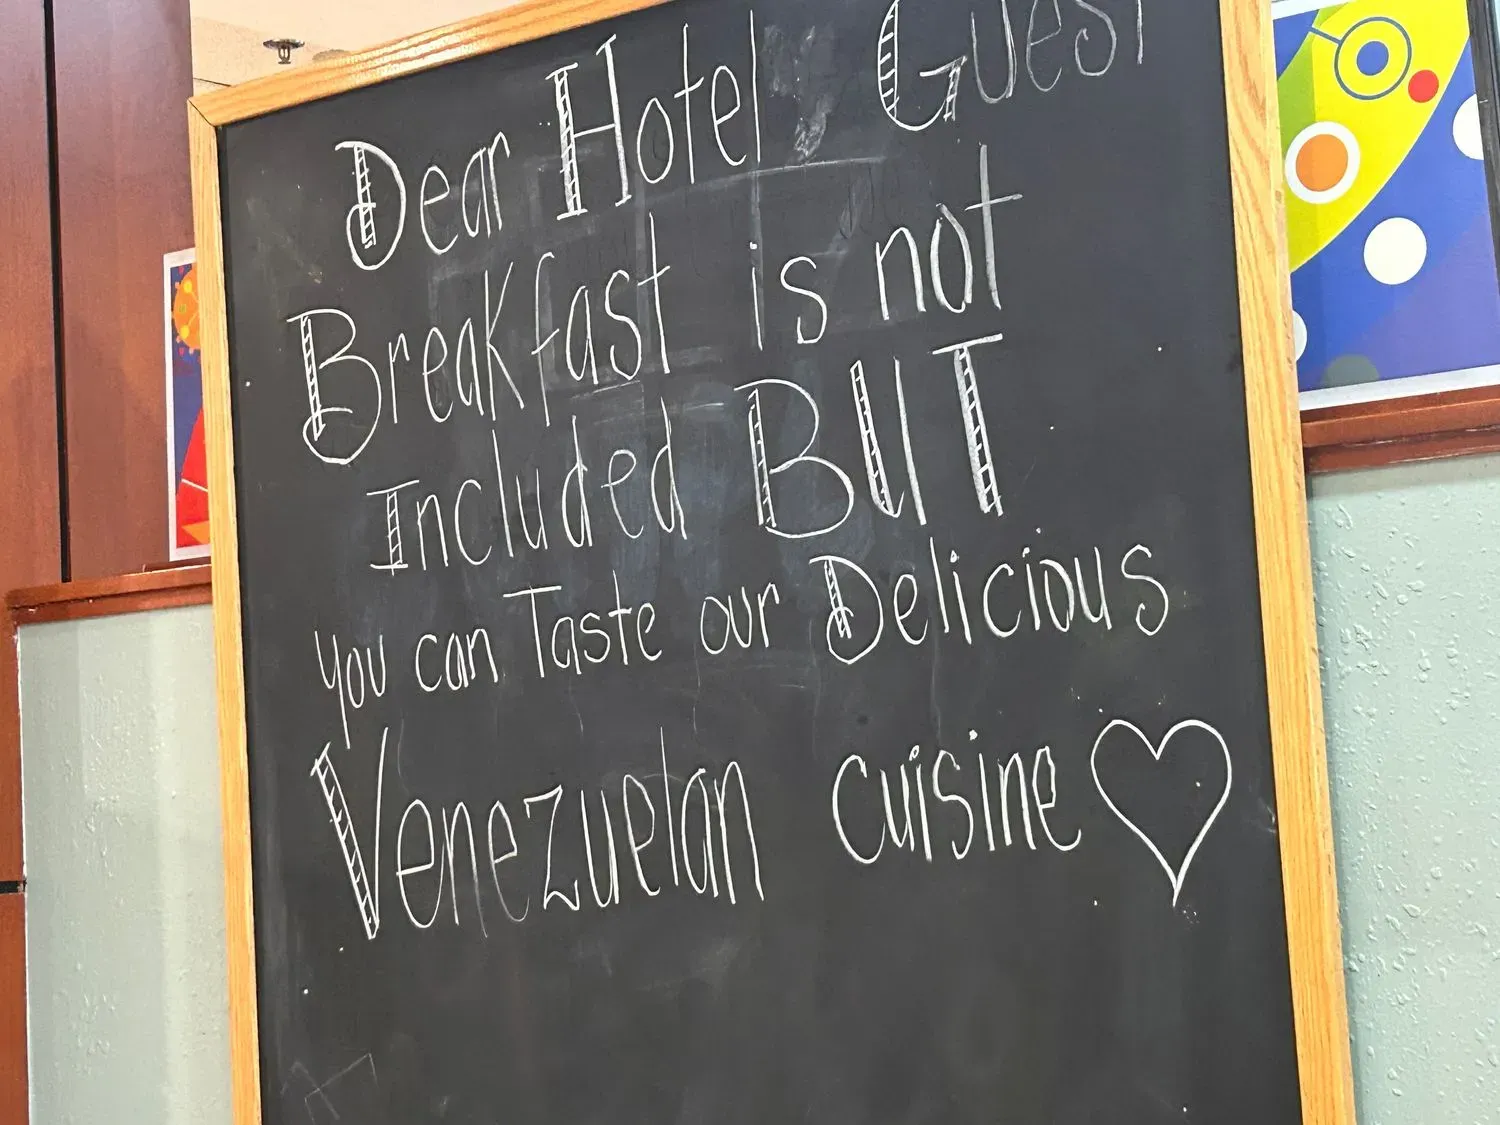 Dear Hotel Guest
Breakfast is not
Included BUT
you can Taste our Delicious
Venezuelan cuisine